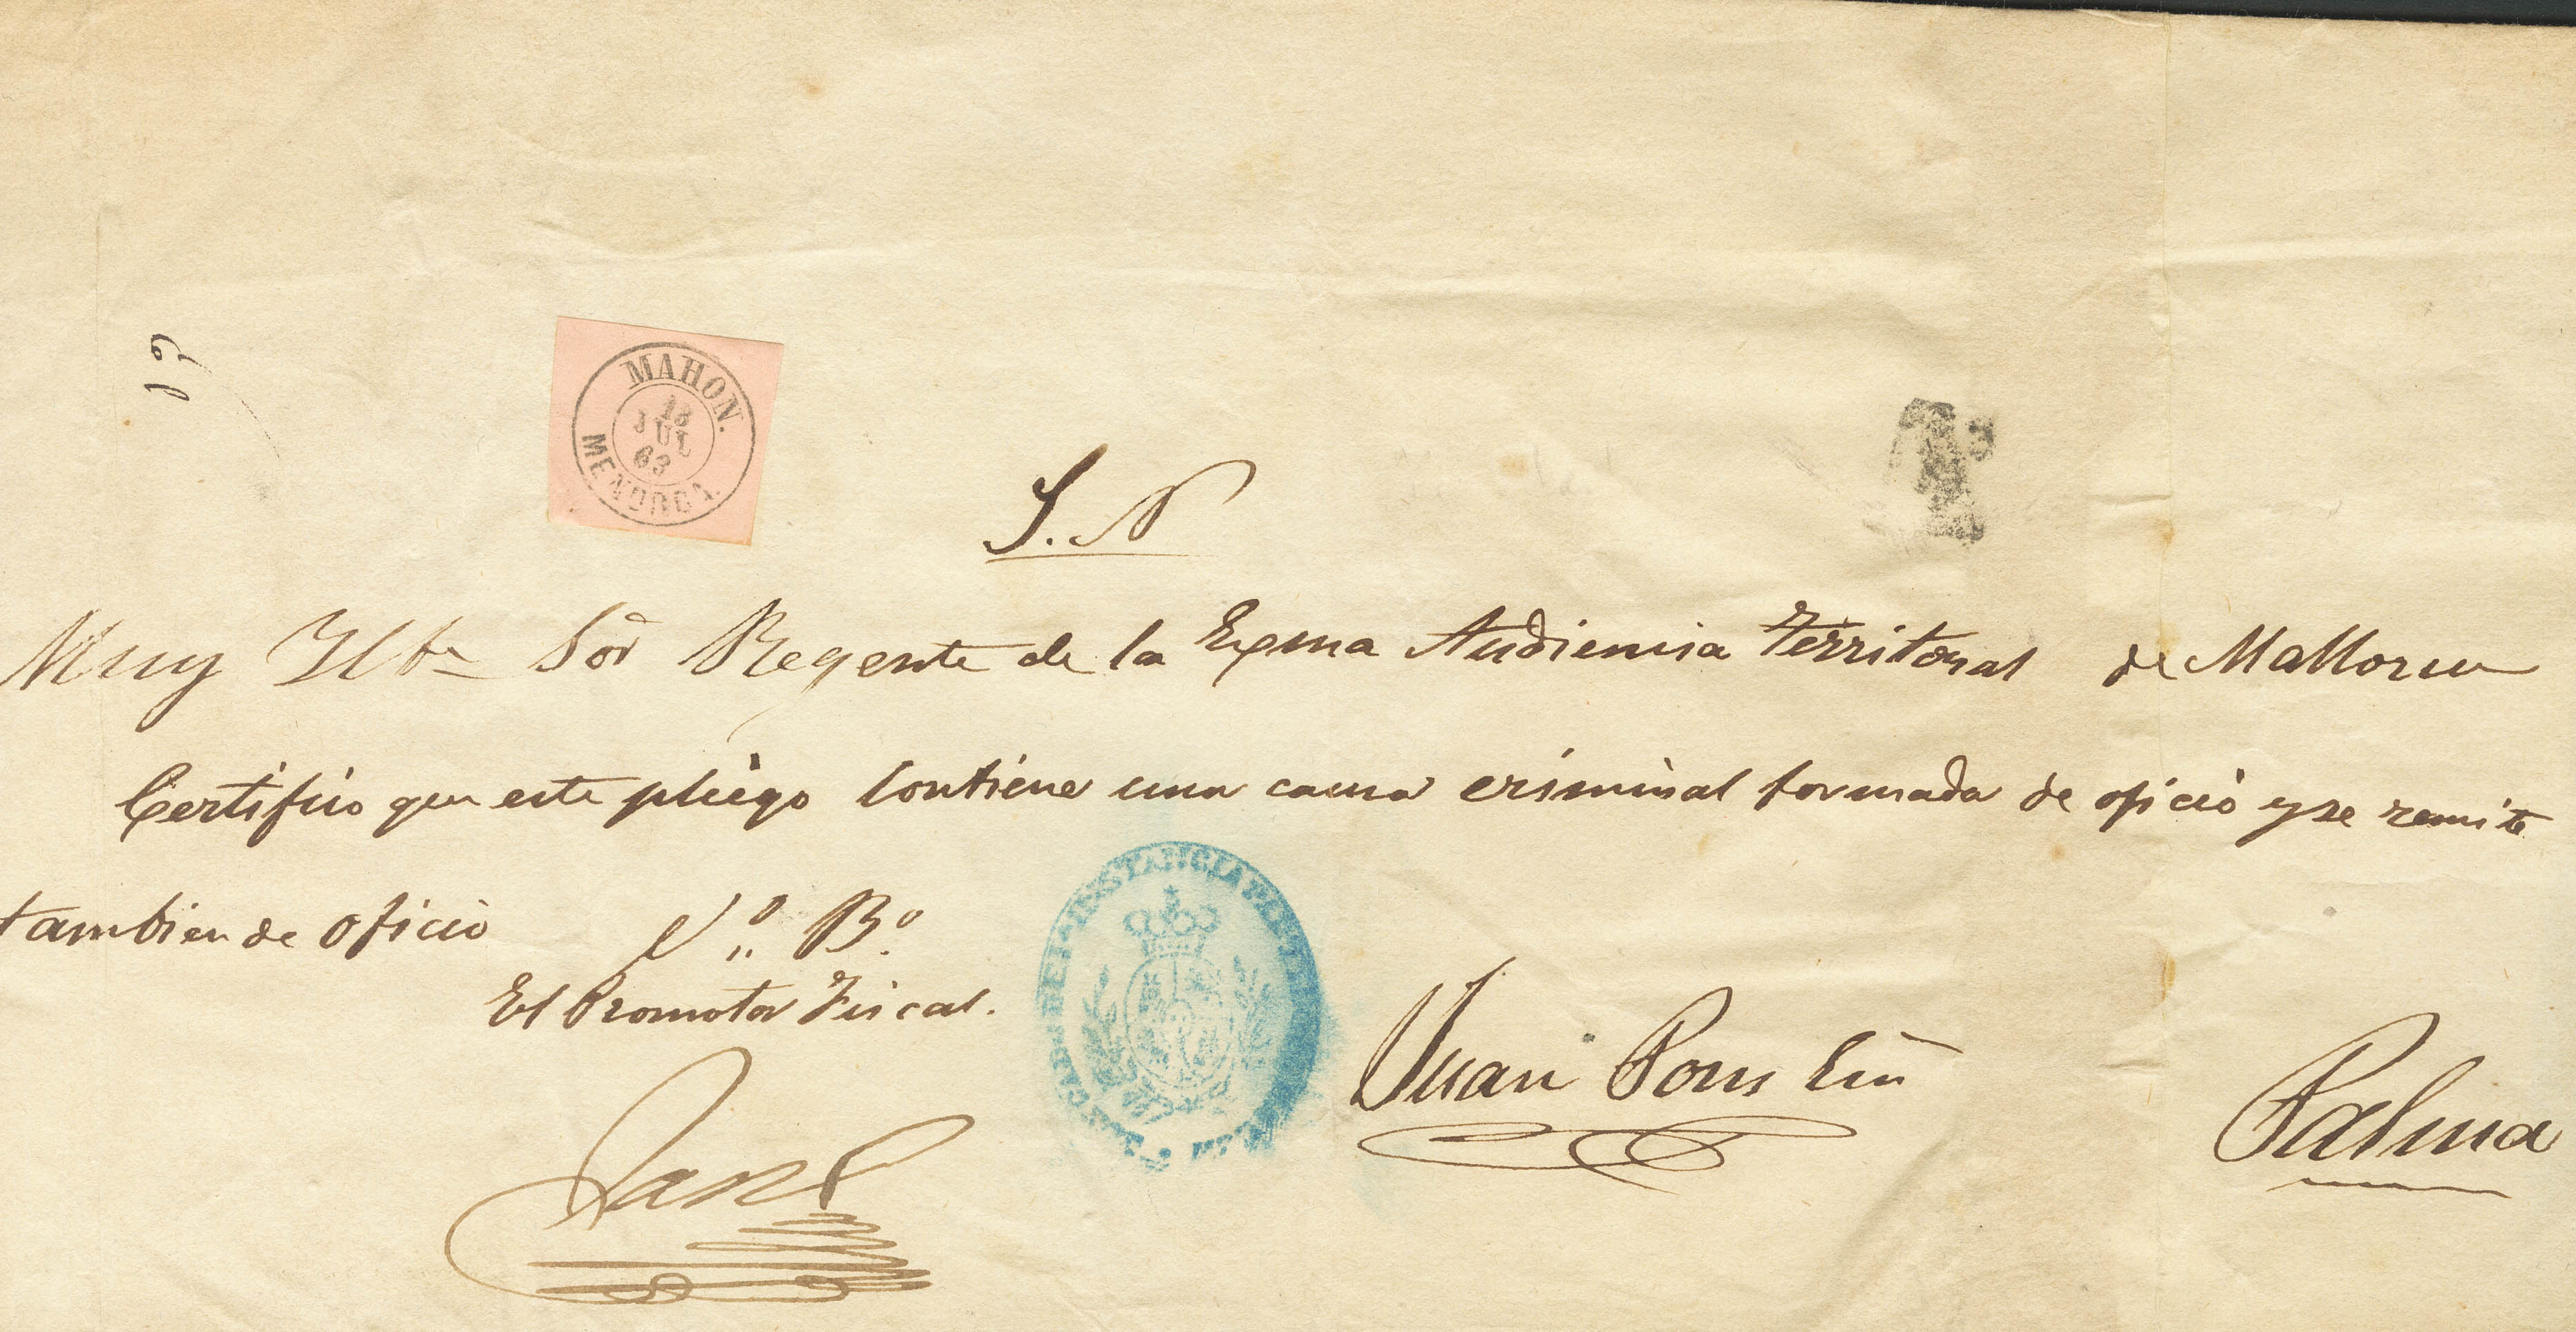 MAHON.
18
JUL
63
MENORCA
S. N
Muy Ilte Sor Regente de la Exma Audiencia Territorial de Mallorca
Certifico que este pliego contiene una causa criminal formada de oficio y se remite
tambien de oficio
Vº Bº
El Promotor Fiscal.
Juan Pons
Palma